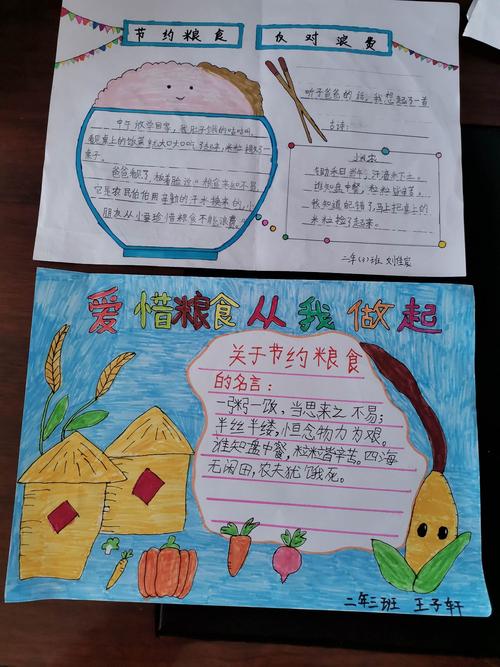 节约粮食 反对浪费
中午放学回家，我肚子饿的咕咕叫，
看桌上的饭菜就大口大口吃了起来，米粒撒了一
桌子。
爸爸看了，板着脸说："粮食来知不易，
它是农民伯伯用辛勤的汗水换来的，小
朋友从小要珍惜粮食不能浪费。"
听了爸爸的话，我想起了一首
古诗：
上悯农
锄禾日当午，汗滴禾下土。
谁知盘中餐，粒粒皆辛苦。
我知道吧错了，马上把桌上的
米粒捡了起来。
二年(3)班 刘佳宸
爱惜粮食从我做起
关于节约粮食
的名言：
一粥一饭，当思来之不易；
半丝半缕，恒念物力为艰。
谁知盘中餐，粒粒皆辛苦。四海
无闲田，农夫犹饿死。
二年三班 王子轩